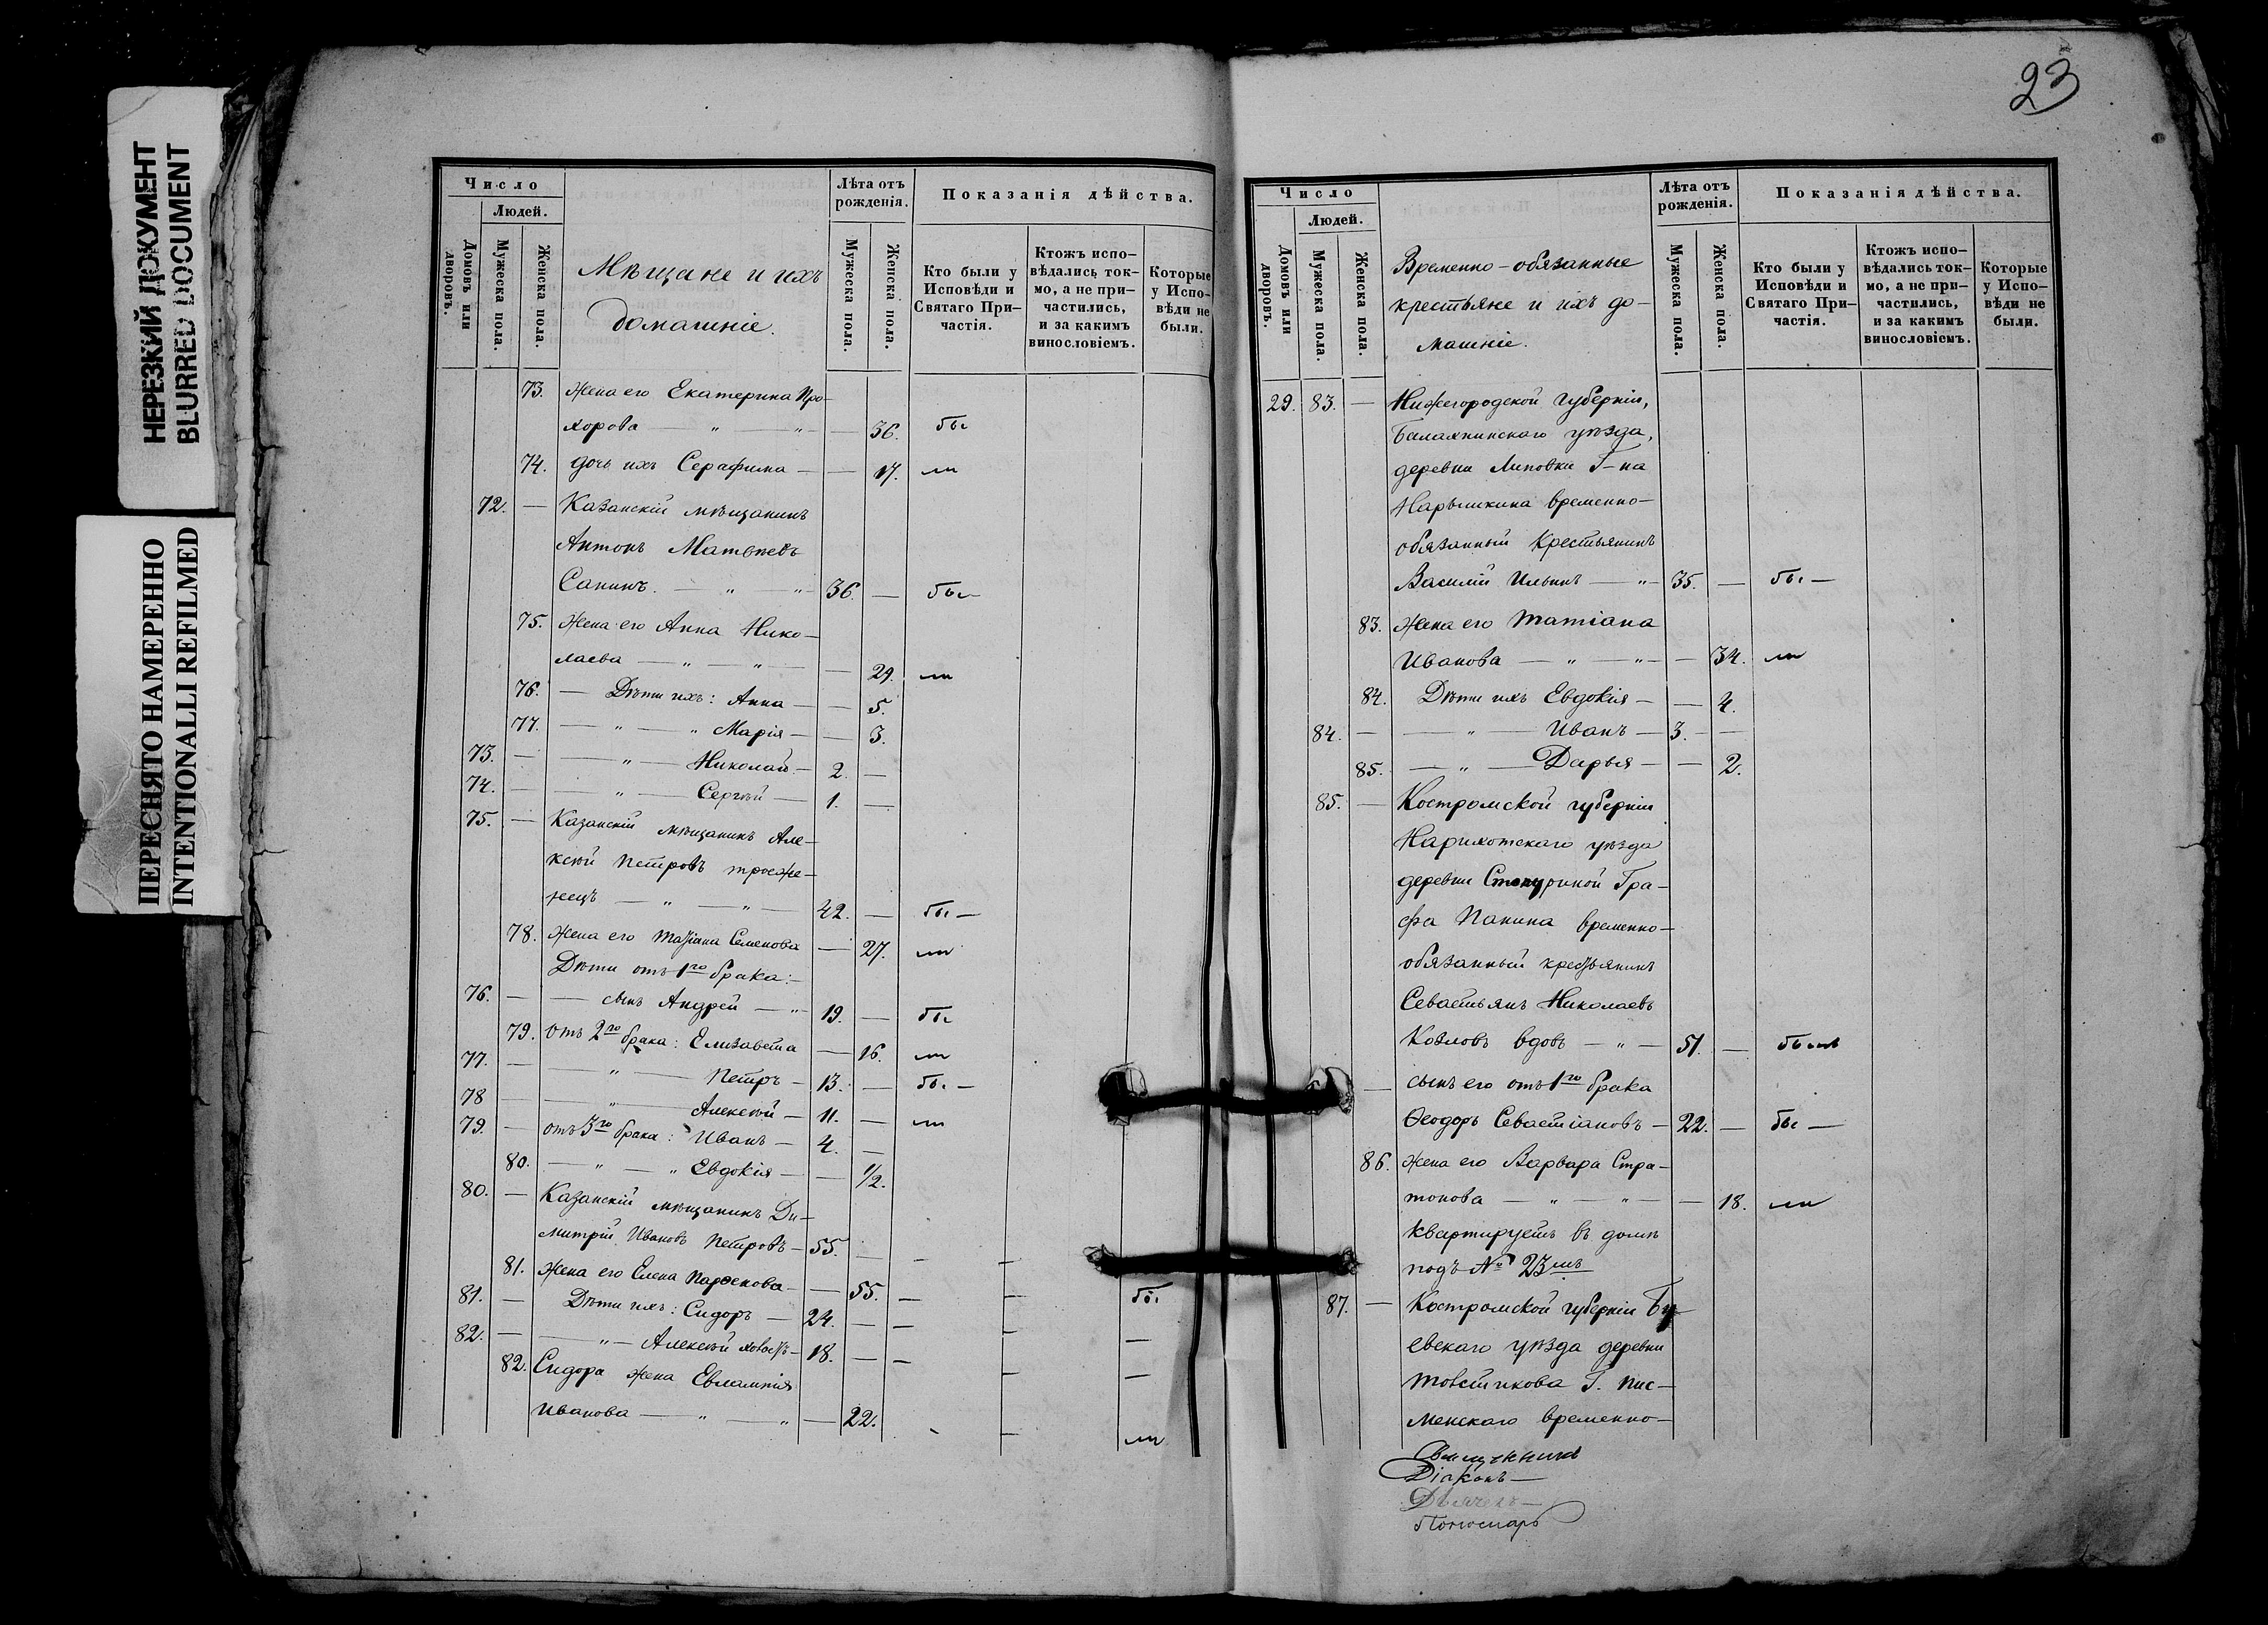 23
НЕРЕЗКИЙ ДОКУМЕНТ
BLURRED DOCUMENT
ПЕРЕСНЯТО НАМЕРЕННО
INTENTIONALLI REFILMED
Число
Людей.
Домовъ или дворовъ.
Мужеска пола.
Женска пола.
Мѣщане и ихъ
домашніе.
Лѣта отъ рожденія.
Мужеска пола.
Женска пола.
Показанія дѣйства.
Кто были у Исповѣди и Святаго При-частія.
Ктожъ испо-вѣдались ток-мо, а не при-частились, и за какимъ винословіемъ.
Которые у Испо-вѣди не были.
73. жена его Екатерина Про-
хорова — „ — „ — — 36. бы
74. дочь ихъ Серафима — — 17. ли
72. — Казанскій мѣщанинъ
Антонъ Матвѣевъ
Санинъ. — „ — „ — 36. — бы —
75. Жена его Анна Нико-
лаева — „ — „ — — 29. ли
76. — Дѣти ихъ: Анна — — 5.
77. — „ — „ Марія — — 3.
73. — — „ — Николай — 2. —
74. — — „ — Сергѣй — 1. —
75. — Казанскій мѣщанинъ Але-
ксѣй Петровъ троеже-
нецъ — „ — „ — 42. — бы —
78. жена его Татіана Семенова — 27. ли
Дѣти отъ 1го брака:
76. — — сынъ Андрей — „ 19. — бы
79. отъ 2го брака: Елизавета — 16. ли
77. — — „ — Петръ — 13. — бы —
78 — — „ — Алексѣй — 11. — ли
79. — отъ 3го брака: Иванъ — 4. —
80. — „ — „ Евдокія — — 1/2.
80. — Казанскій мѣщанинъ Ди-
митрій Ивановъ Петровъ — 55. — — —
81. жена его Елена Парѳенова — — 55. — — бы
81. — Дѣти ихъ: Сидоръ — 24. — — — —
82. — — „ — Алексѣй холостъ — 18. — — — —
82. Сидора жена Евлампія
Иванова — „ — „ — 22. - — ли
Число
Людей.
Домовъ или дворовъ.
Мужеска пола.
Женска пола.
Временно-обязанные
крестьяне и ихъ до-
машніе.
Лѣта отъ рожденія.
Мужеска пола.
Женска пола.
Показанія дѣйства.
Кто были у Исповѣди и Святаго При-частія.
Ктожъ испо-вѣдались ток-мо, а не при-частились, и за какимъ винословіемъ.
Которые у Испо-вѣди не были.
29. 83. — Нижегородской Губерніи,
Балахнинскаго уѣзда,
деревни Липовки Г-на
Нарышкина временно-
обязанный крестьянинъ
Василій Ильинъ — „ — 35. — бы —
83. Жена его Татіана
Иванова — „ — „ — — 34. ли
84. Дѣти ихъ Евдокія — — 4.
84. — — „ — Иванъ — 3. — —
85. — „ — Дарья — — 2.
85. — Костромской губерніи
уѣзда
деревни Гра-
фа Панина временно-
обязанный крестьянинъ
Севастьянъ Николаевъ
Козловъ вдовъ — „ — 51. — былъ
— сынъ его отъ 1го брака
Ѳеодоръ Севастіановъ — 22. — бы —
86. жена его Варвара Стра-
тонова — „ — „ — — 18. ли
квартируетъ въ домѣ
подъ № 23мъ
87. — Костромской губерніи Бу-
евскаго уѣзда деревни
Товстикова Г. Пис-
менскаго временно-
Священникъ
Діаконъ —
Дьячекъ —
Пономарь